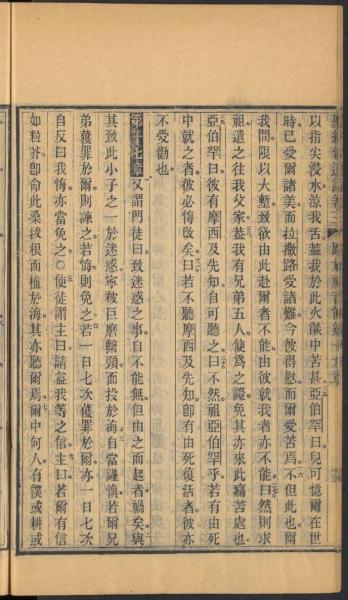 以指尖浸水涼我舌蓋我於此火𦦨中苦甚亞伯罕曰兒可憶爾在世
時已受爾諸美而拉撒路受諸難今彼得慰而爾受苦焉不但此也爾
我間限以大塹致欲由此赴爾者不能由彼就我者亦不能曰然則求
祖遣之往我父家蓋我有兄弟五人使爲之證免其亦來此痛苦處也
亞伯罕曰彼有摩西及先知自可聽之曰不然祖亞伯罕乎若有由死
中就之者彼必悔改矣曰若不聽摩西及先知卽有由死復活者彼亦
不受勸也
第十七章又謂門徒曰致迷惑之事自不能無但由之而起者禍矣與
其致此小子之一於迷惑寧被巨磨繫頸而投於海自當謹愼若爾兄
弟獲罪於爾則諫之若悔則免之若一日七次獲罪於爾亦一日七次
自反曰我悔亦當免之○使徒謂主曰請益我等之信主曰若爾有信
如粒芥卽命此桑拔根而植於海其亦聽爾焉爾中何人有僕或耕或